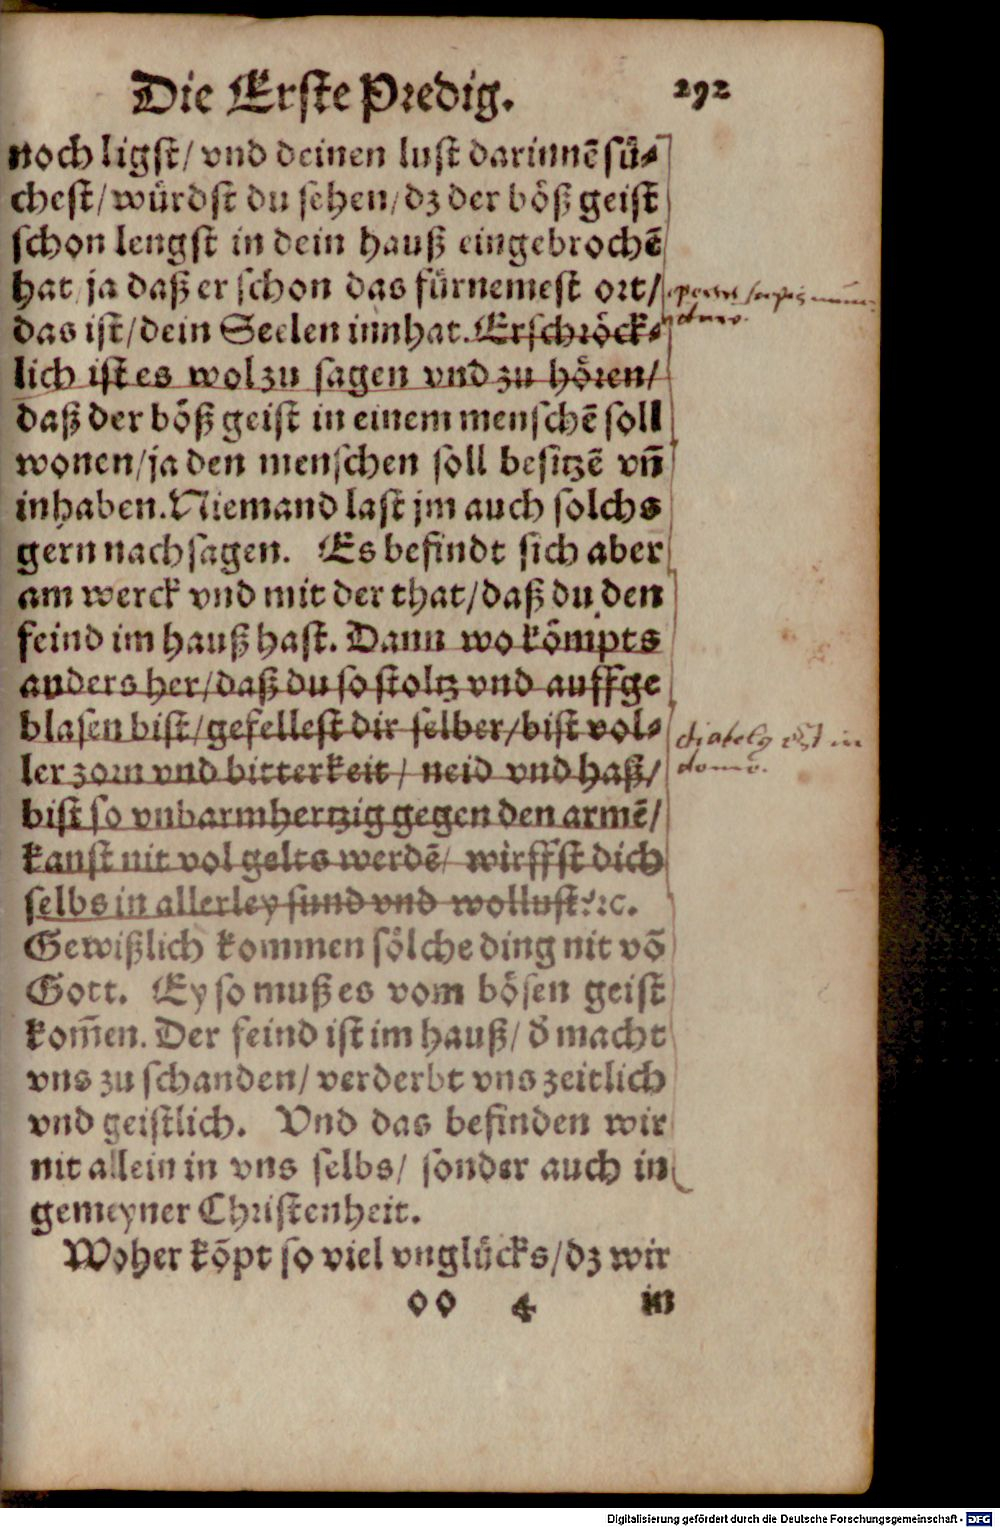 Die Erste Predig. 292
noch ligst/ vnd deinen lust darinnē sů⸗
chest/ würdst du sehen/ dz der böß geist
schon lengst in dein hauß eingebrochē
hat/ ja daß er schon das fürnemest ort/
das ist/ dein Seelen innhat. Erschröck⸗
lich ist es wol zu sagen vnd zu hören/
daß der böß geist in einem menschē soll
wonen/ ja den menschen soll besitzē vñ
inhaben. Niemand last jm auch solchs
gern nachsagen. Es befindt sich aber
am werck vnd mit der that/ daß du den
feind im hauß hast. Dann wo kōmpts
anders her/ daß du so stoltz vnd auffge
blasen bist/ gefellest dir selber/ bist vol⸗
ler zorn vnd bitterkeit/ neid vnd haß/
bist so vnbarmhertzig gegen den armē/
kanst nit vol gelts werdē/ wirffst dich
selbs in allerley sund vnd wollust ꝛc.
Gewißlich kommen sölche ding nit vō
Gott. Ey so muß es vom bösen geist
kom̄en. Der feind ist im hauß/ d̄ macht
vns zu schanden/ verderbt vns zeitlich
vnd geistlich. Vnd das befinden wir
nit allein in vns selbs/ sonder auch in
gemeyner Christenheit.
Woher kōpt so viel vnglücks/ dz wir
oo 4 in
diabolꝯ est in
domo.
Digitalisierung gefördert durch die Deutsche Forschungsgemeinschaft - DFG